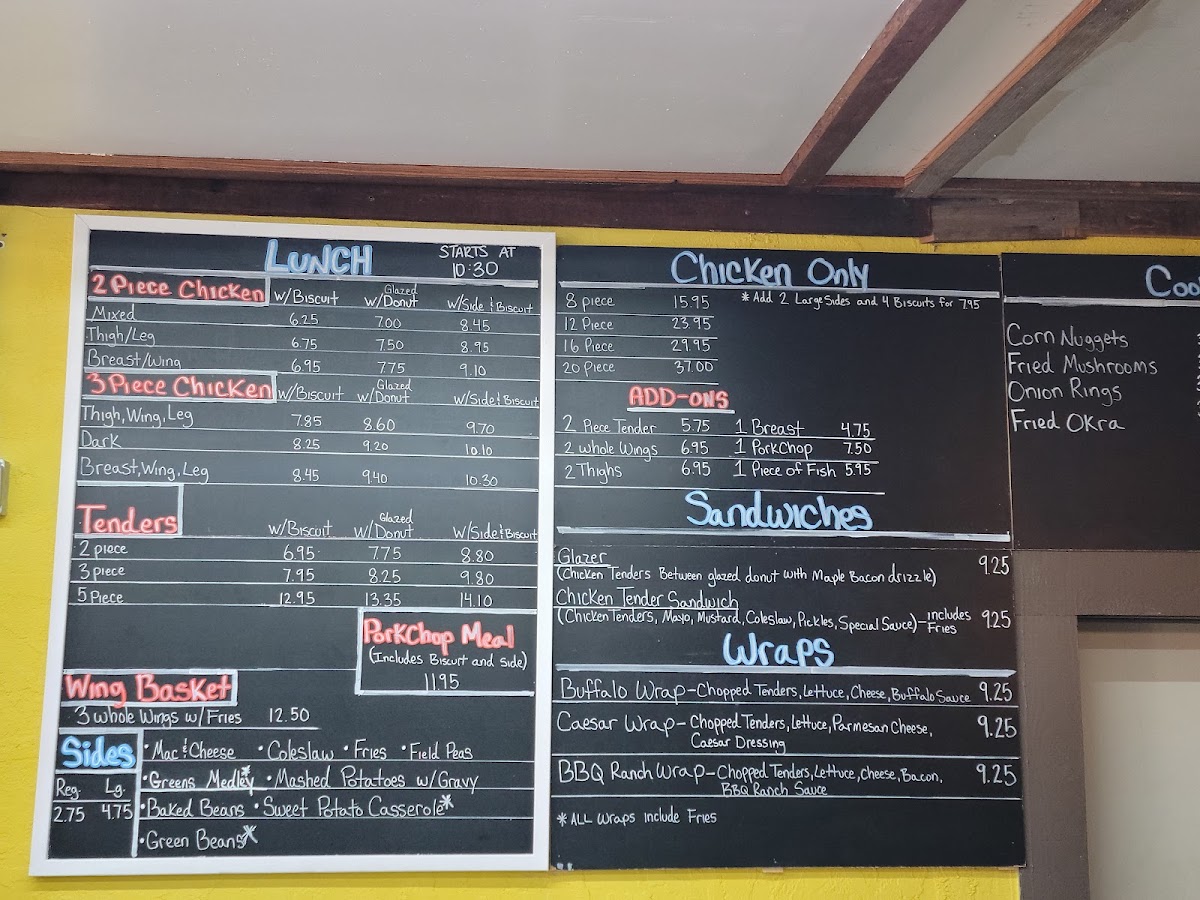 LUNCH
STARTS AT
10:30
2 Piece Chicken w/Biscuit Glazed w/Donut w/Side & Biscuit
Mixed 6.25 7.00 8.45
Thigh/Leg 6.75 7.50 8.95
Breast/Wing 6.95 7.75 9.10
3 Piece Chicken w/Biscuit Glazed w/Donut w/Side & Biscuit
Thigh, Wing, Leg 7.85 8.60 9.70
Dark 8.25 9.20 10.10
Breast, Wing, Leg 8.45 9.40 10.30
Tenders w/Biscuit Glazed w/Donut w/Side & Biscuit
2 piece 6.95 7.75 8.80
3 piece 7.95 8.25 9.80
5 Piece 12.95 13.35 14.10
PorkChop Meal
(Includes Biscuit and Side)
11.95
Wing Basket
3 whole Wings w/Fries 12.50
Sides
Reg. Lg.
2.75 4.75
• Mac & Cheese • Coleslaw • Fries • Field Peas
• Greens Medley* • Mashed Potatoes w/Gravy
• Baked Beans • Sweet Potato Casserole*
• Green Beans*
Chicken Only
8 piece 15.95 * Add 2 Large Sides and 4 Biscuits for 7.95
12 Piece 23.95
16 Piece 29.95
20 Piece 37.00
ADD-ONS
2 Piece Tender 5.75 1 Breast 4.75
2 whole Wings 6.95 1 PorkChop 7.50
2 Thighs 6.95 1 Piece of Fish 5.95
Sandwiches
Glazer 9.25
(Chicken Tenders Between glazed donut with Maple Bacon drizzle)
Chicken Tender Sandwich
(Chicken Tenders, Mayo, Mustard, Coleslaw, Pickles, Special Sauce) - includes Fries 9.25
Wraps
Buffalo Wrap - Chopped Tenders, Lettuce, Cheese, Buffalo Sauce 9.25
Caesar Wrap - Chopped Tenders, Lettuce, Parmesan Cheese, 9.25
Caesar Dressing
BBQ Ranch Wrap - Chopped Tenders, Lettuce, Cheese, Bacon, 9.25
BBQ Ranch Sauce
* ALL Wraps include Fries
Corn Nuggets
Fried Mushrooms
Onion Rings
Fried Okra